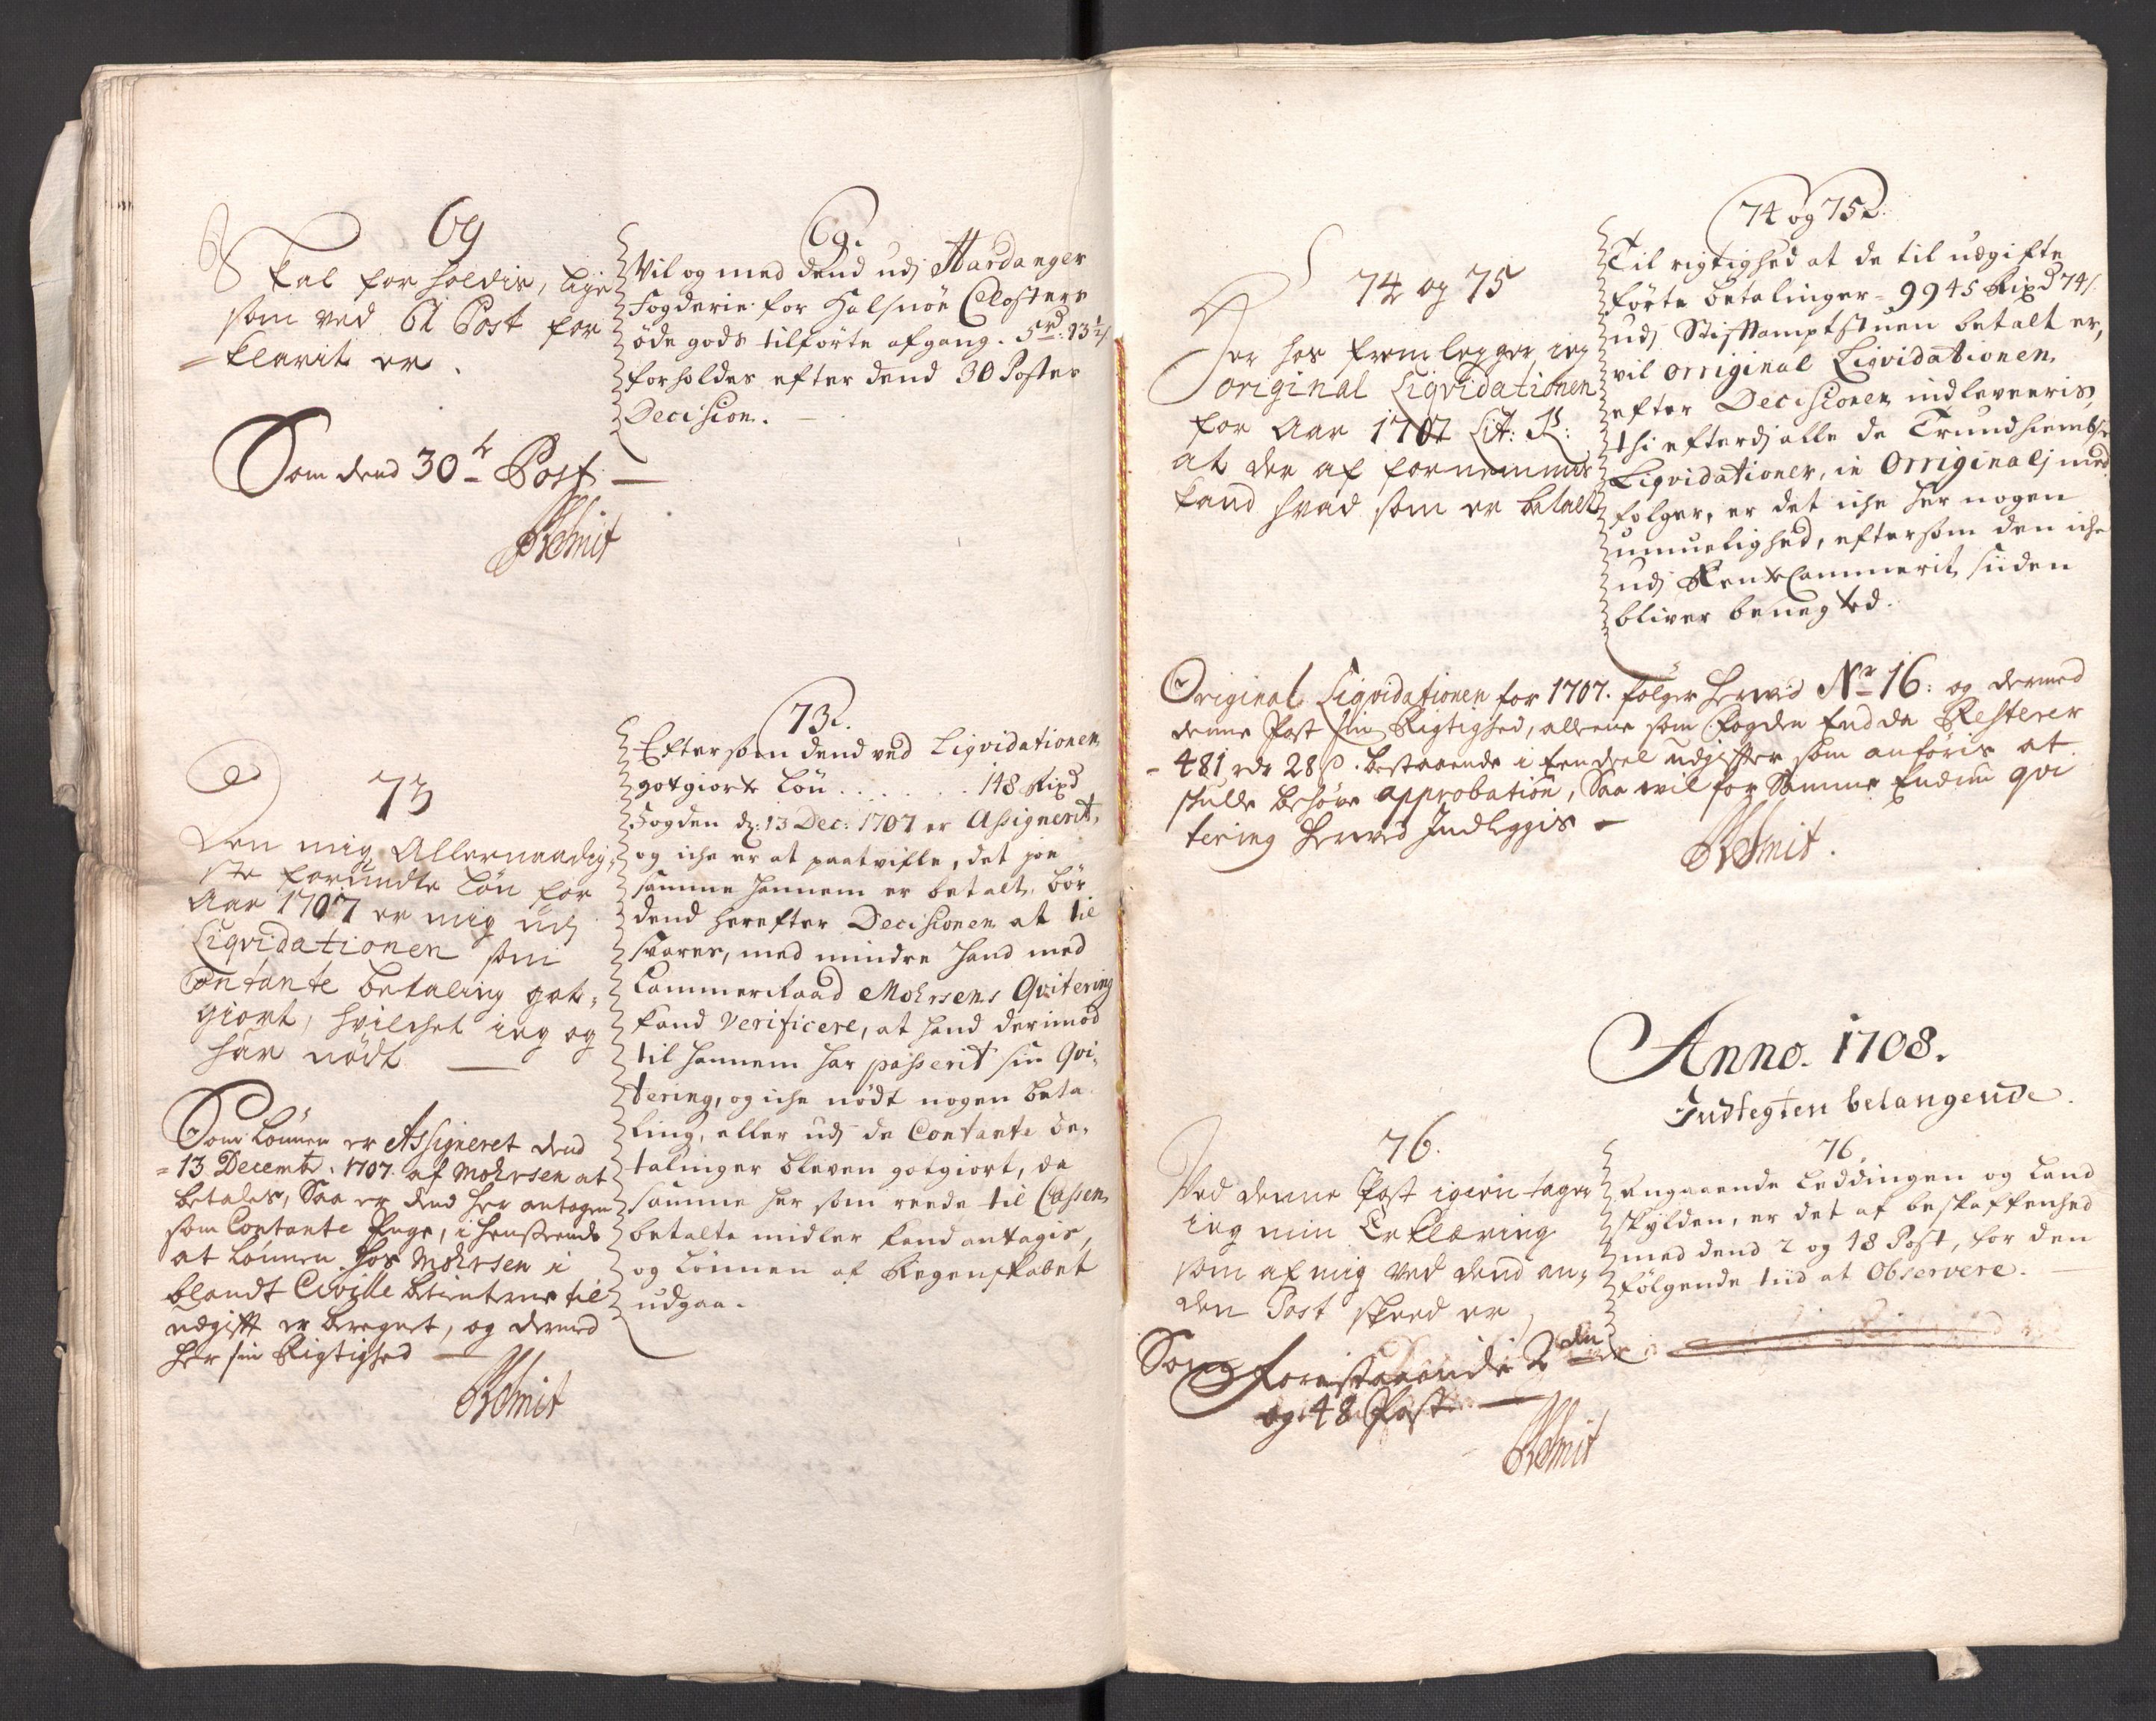 69
Skal forholdis, lige
som ved 61 Post for
=klarit er.
Som dend 30te Post
69.
Vil og med dend udj Hardanger
Fogderie for Halsnöe Closters
öde gods tilförte afgang. 5 rd: 93½ s
forholdes efter dend 30 Postes
Decision.
73
Den mig Allernaadig,
ste forundte Lön for
Aar 1707 er mig udj
Liqvidationen som
Contante betaling got,
giort, hvilchet ieg og
har nödt
Som Lönnen er Assigneret dend
=13 Decembr. 1707. af Mohrsen at
betales, Saa er dend her antagen
som Contante Penge, i henseende
at Lönnen hos Mohrsen i
blandt Civille betienterne til
udgift er beregnet, og dermed
her sin Rigtighed
73.
Eftersom dend ved Liqvidationen
gotgiorte Lön . . . . . . 148 Rixd
Fogden d: 13 Dec: 1707 er Assignerit,
og iche er at paatvifle, det jo
samme hannem er betalt, bör
dend herefter Decisionen at til
svares, med mindre hand med
Cammerraad Mohrsens Qvitering
kand Verificere, at hand derimod
til hannem har passerit sin Qvi,
tering, og iche nödt nogen beta
ling, eller udj de Contante be,
talinger bleven gotgiort, da
samme her som reede til Cassen
betalte midler kand antagis,
og Lönnen af Regenskabet
udgaa.
74 og 75
Her hos fremlegger ieg
original Liqvidationen
for Aar 1707 Lit:
at der af fornemmes
kand hvad som er betalt
74 og 75.
Til rigtighed at de til udgifte
förte betalinger = 9945 Rixd 74 s.
udj Stiftamptstuen betalt er,
vil orriginal Liqvidationen
efter Decisionen indleveeris,
thi efterdj alle de Trundhiembske
Liqvidationer, in Orriginalj med
fölger, er det iche her nogen
umuelighed, eftersom den iche
udj RenteCammerit siiden
bliver benegted.
Original Liqvidationen for 1707. fölger herved No 16: og dermed
denne Post sin Rigtighed, alleene som Fogden endda Resterer
- 481 rdr 28 s. bestaaende i een deel udgifter som anföris at
skulle behöve approbation, Saa vil for Samme Endnu qvi
tering herved Indlegges
Anno. 1708.
Indtegten belangende.
76.
Ved denne Post igien tager
ieg min Erklæring
som af mig ved dend an,
den Post skeed er
Som forestaaende 2den
og 48 Post
76.
Angaaende Leddingen og Land
skylden, er det af beskaffenhed
med dend 2 og 48 Post, for den
fölgende tiid at Observere.